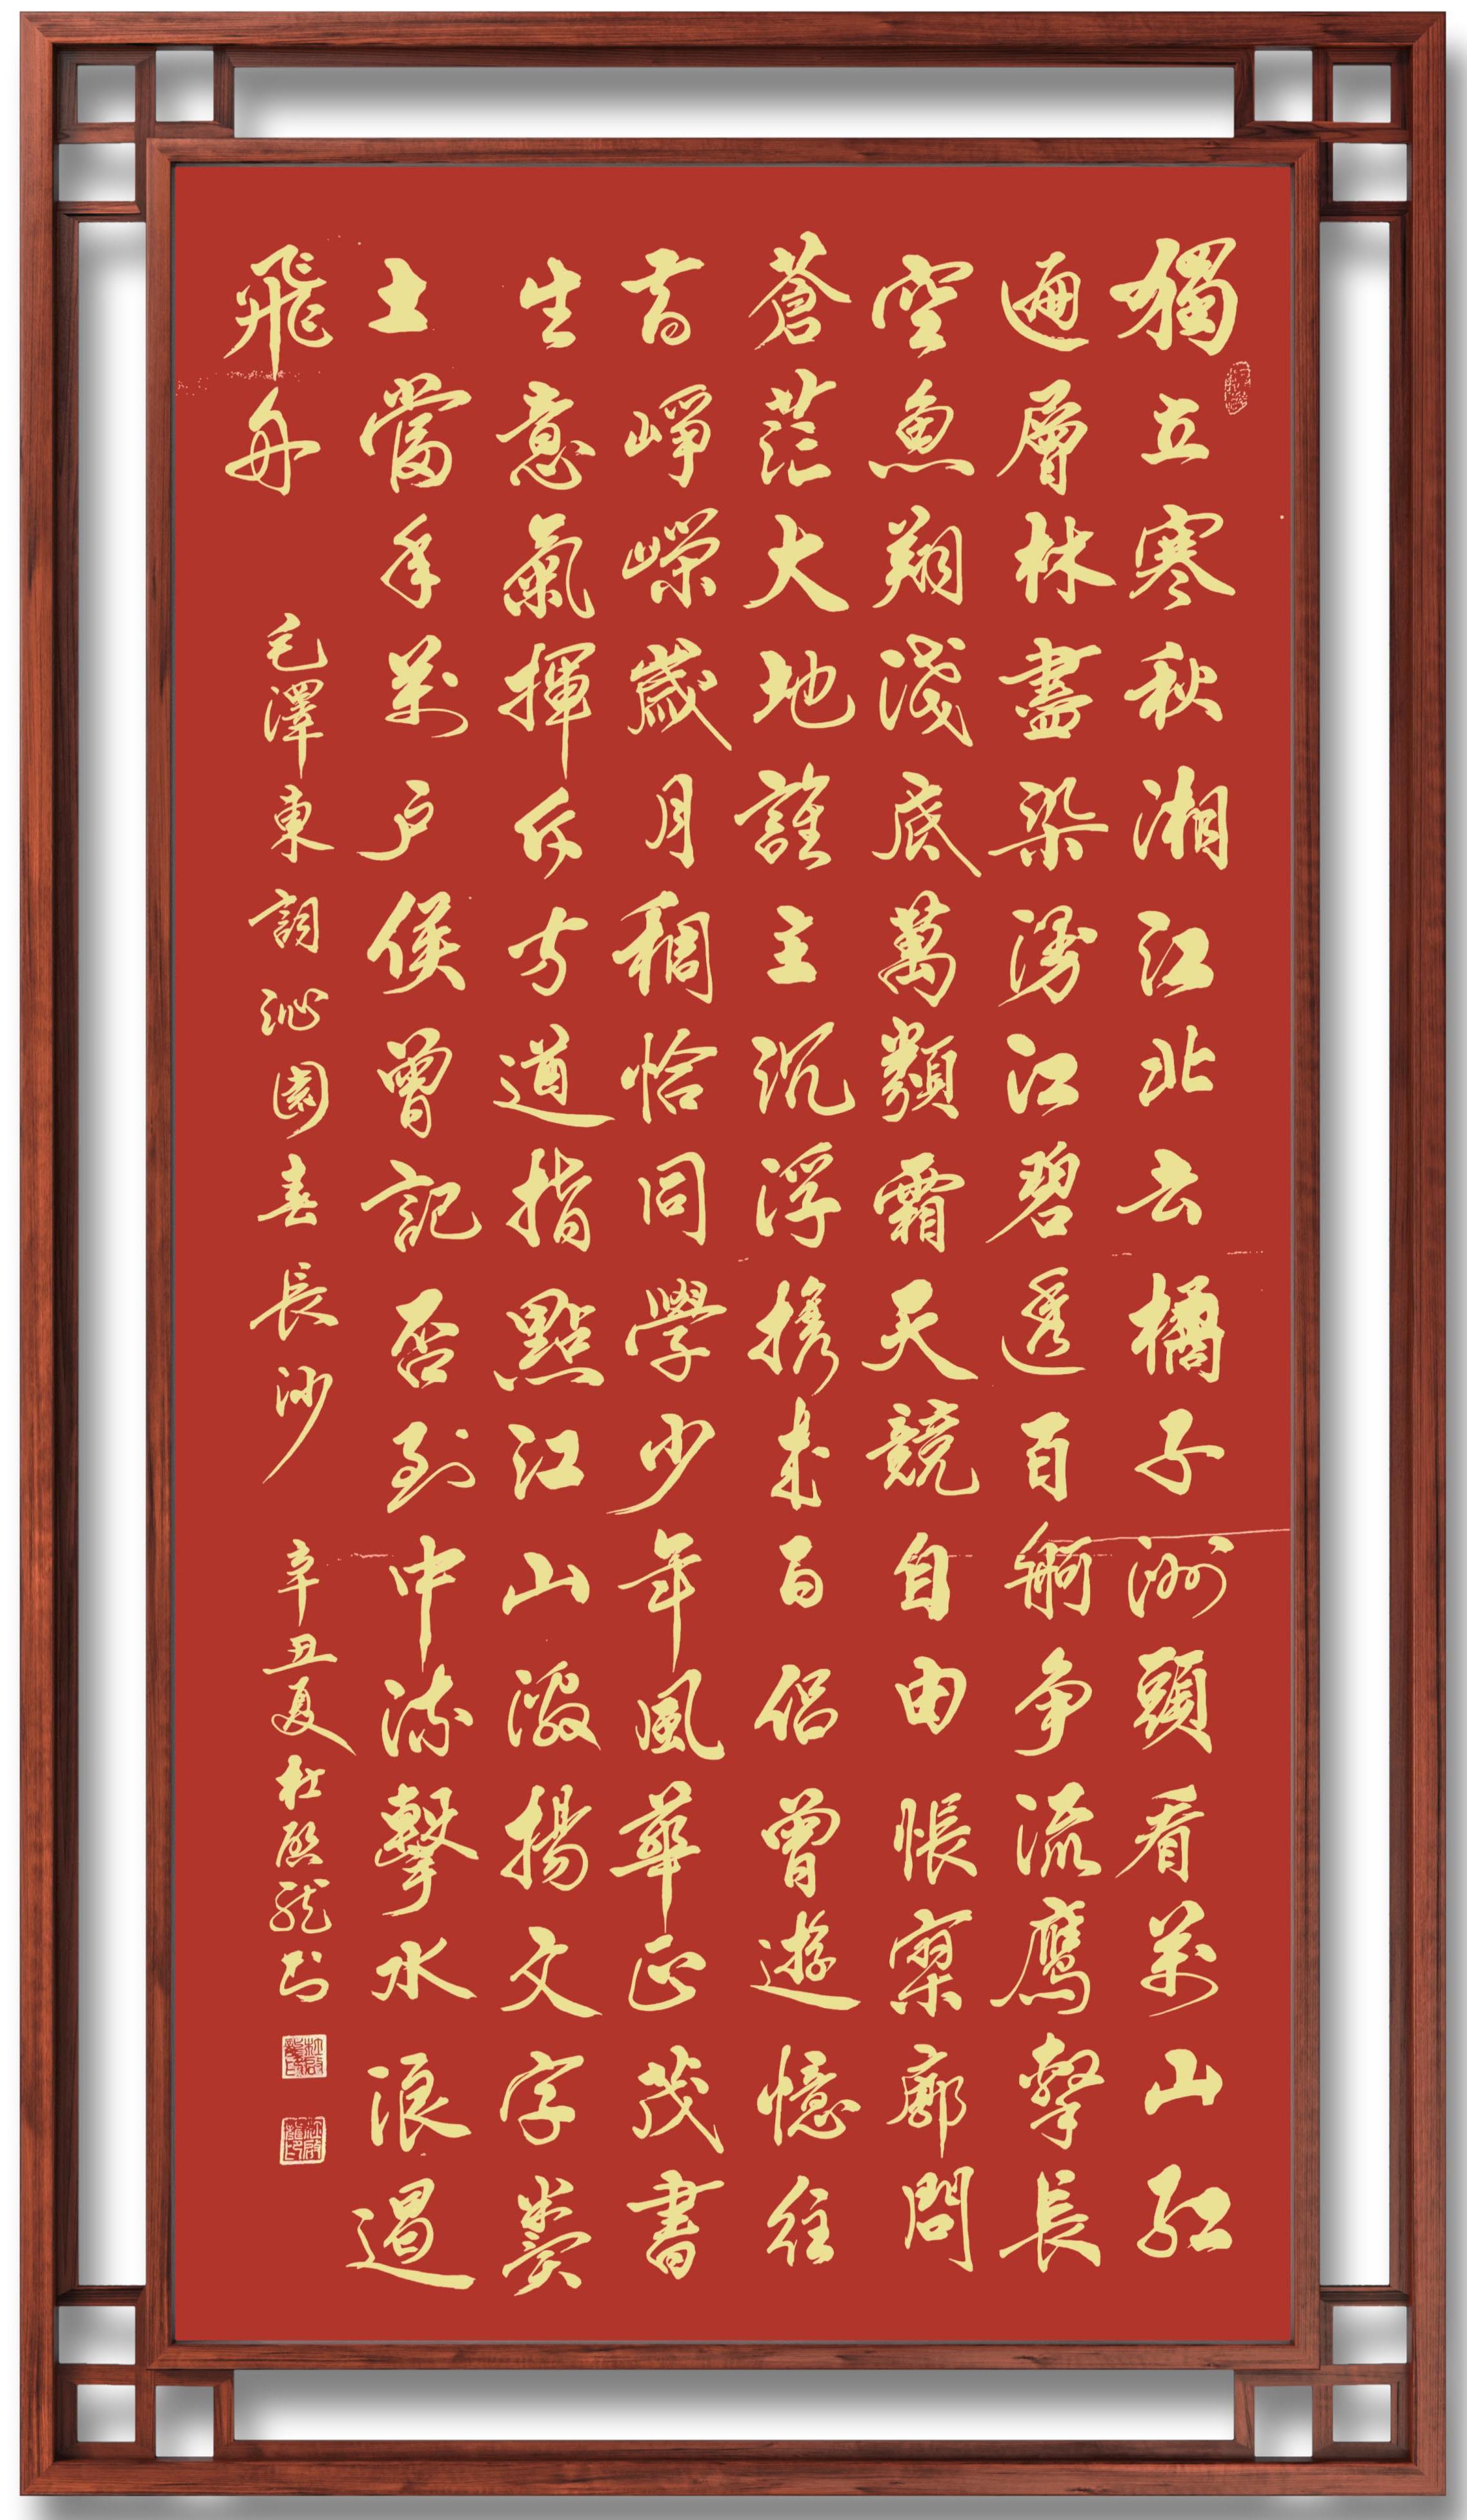 獨立寒秋湘江北去橘子洲頭看萬山紅
遍層林盡染漫江碧透百舸爭流鷹擊長
空魚翔淺底萬類霜天競自由悵寥廓問
蒼茫大地誰主沉浮攜來百侶曾遊憶往
昔崢嶸歲月稠恰同學少年風華正茂書
生意氣揮斥方遒指點江山激揚文字糞
土當年萬戶侯曾記否到中流擊水浪遏
飛舟
毛澤東詞沁園春長沙 辛丑夏杜啟龍書